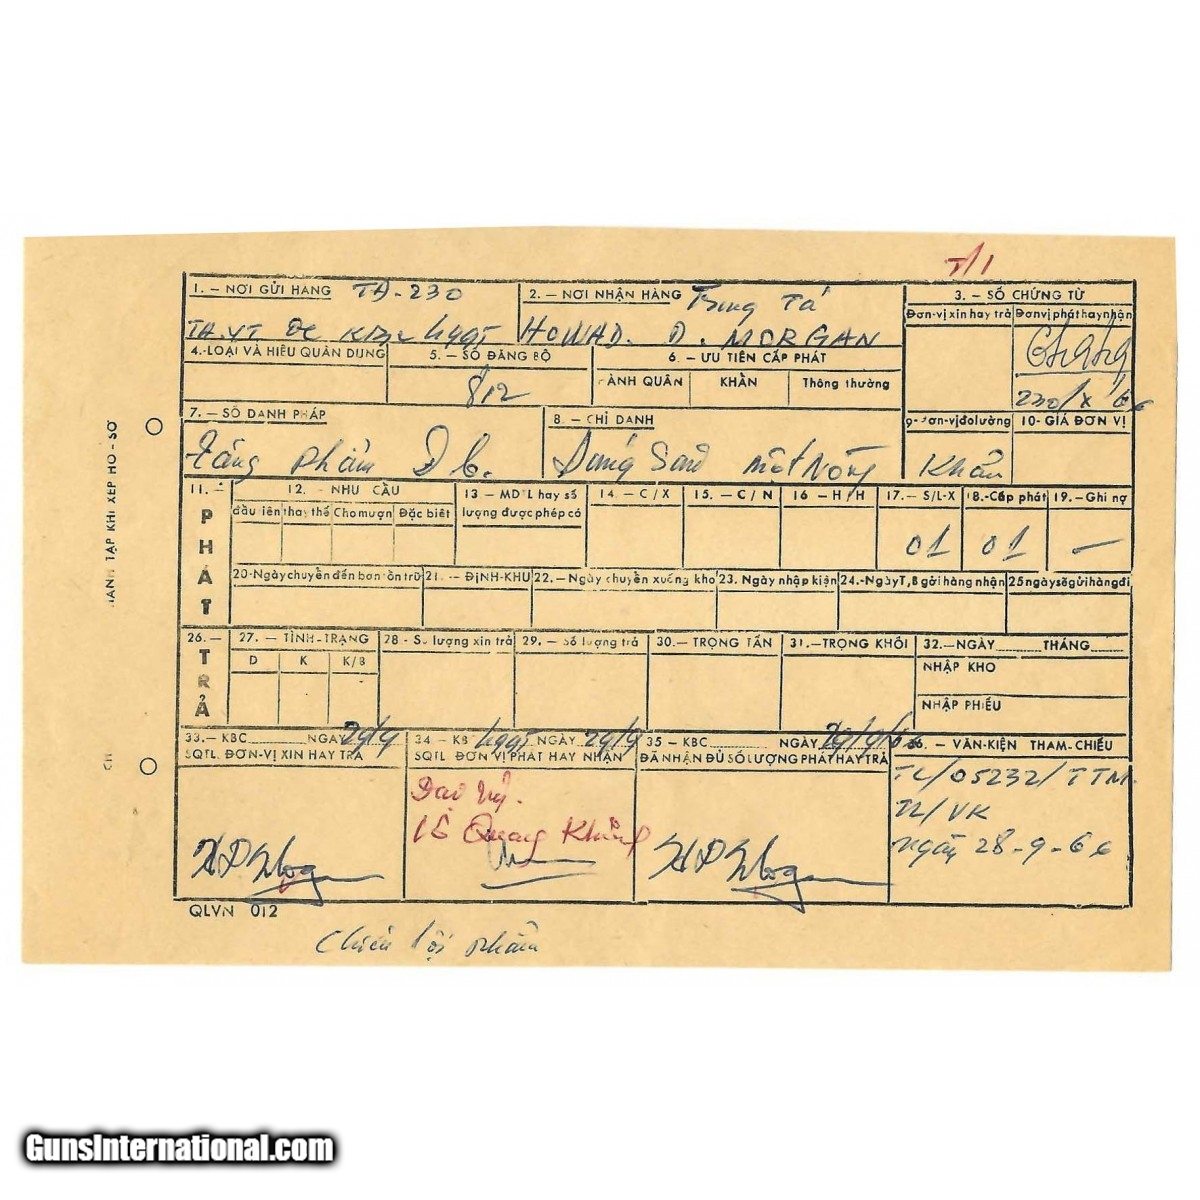 T/1
1. – NƠI GỬI HANG TĐ-230
2. – NƠI NHẬN HÀNG Trung Tá
HOWAD. D. MORGAN
3. – SỐ CHỨNG TỪ
Đơn-vị xin hay trả Đơnvịpháthaynhận
230/X/66
4.-LOẠI VÀ HIỆU QUÂN DỤNG
5. – SỐ ĐĂNG BỘ
812
6. – ƯU TIÊN CẤP PHÁT
HÀNH QUÂN KHẨN Thông thường
7. – SỐ DANH PHÁP
Tặng phẩm Đ b.
8. – CHỈ DANH
Súng Săn một Nòng
9-Đơn-vịđolường
Khẩu
10- GIÁ ĐƠN VỊ
11. – PHÁT
12. – NHU CẦU
đầu tiên thay thế Chomượn Đặc biêt
13 – MDTL hay số
lượng được phép có
14. – C/X 15. – C/N 16 – H/H 17. – S/L-X 18.-Cấp phát 19.-Ghi nợ
01 01 –
20-Ngàychuyển đến bantồn trữ 21. – ĐỊNH-KHU 22. – Ngày chuyển xuống kho 23. Ngày nhập kiện 24.-NgàyT,B gởi hàng nhận 25ngàysẽgửihàngđi
26. – TRẢ
27. – TÌNH-TRẠNG 28 - Số lượng xin trả 29. – số lượng trả 30. – TRỌNG TẤN 31. – TRỌNG KHỐI 32.–NGÀY THÁNG
D K K/B
NHẬP KHO
NHẬP PHIẾU
33.– KBC NGÀY 29/9
SQTL. ĐƠN-VỊ XIN HAY TRẢ
34 – KB 4497 NGÀY 29/9
SQTL ĐƠN VỊ PHÁT HAY NHẬN
Lê Quang Khủng
35 – KBC NGÀY 29/9/66
ĐÃ NHẬN ĐỦ SỐ LƯỢNG PHÁT HAY TRẢ
36. – VĂN-KIỆN THAM-CHIẾU
TL/05232/TTM.
TL/VK
ngày 28-9-66
QLVN 012
Chiến lợi phẩm
TẬP KHI XẾP HO-SƠ
GunsInternational.com